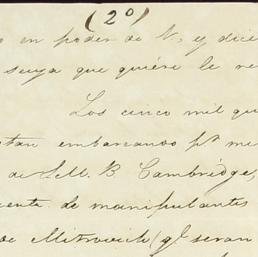 (2º)
en poder de V. y dice
suya que quiére le re
Los cinco mil qu
tan embarcando pr me
de S.M.B Cambridge,
cente de manipulantes
de Mitrovich (ql seran